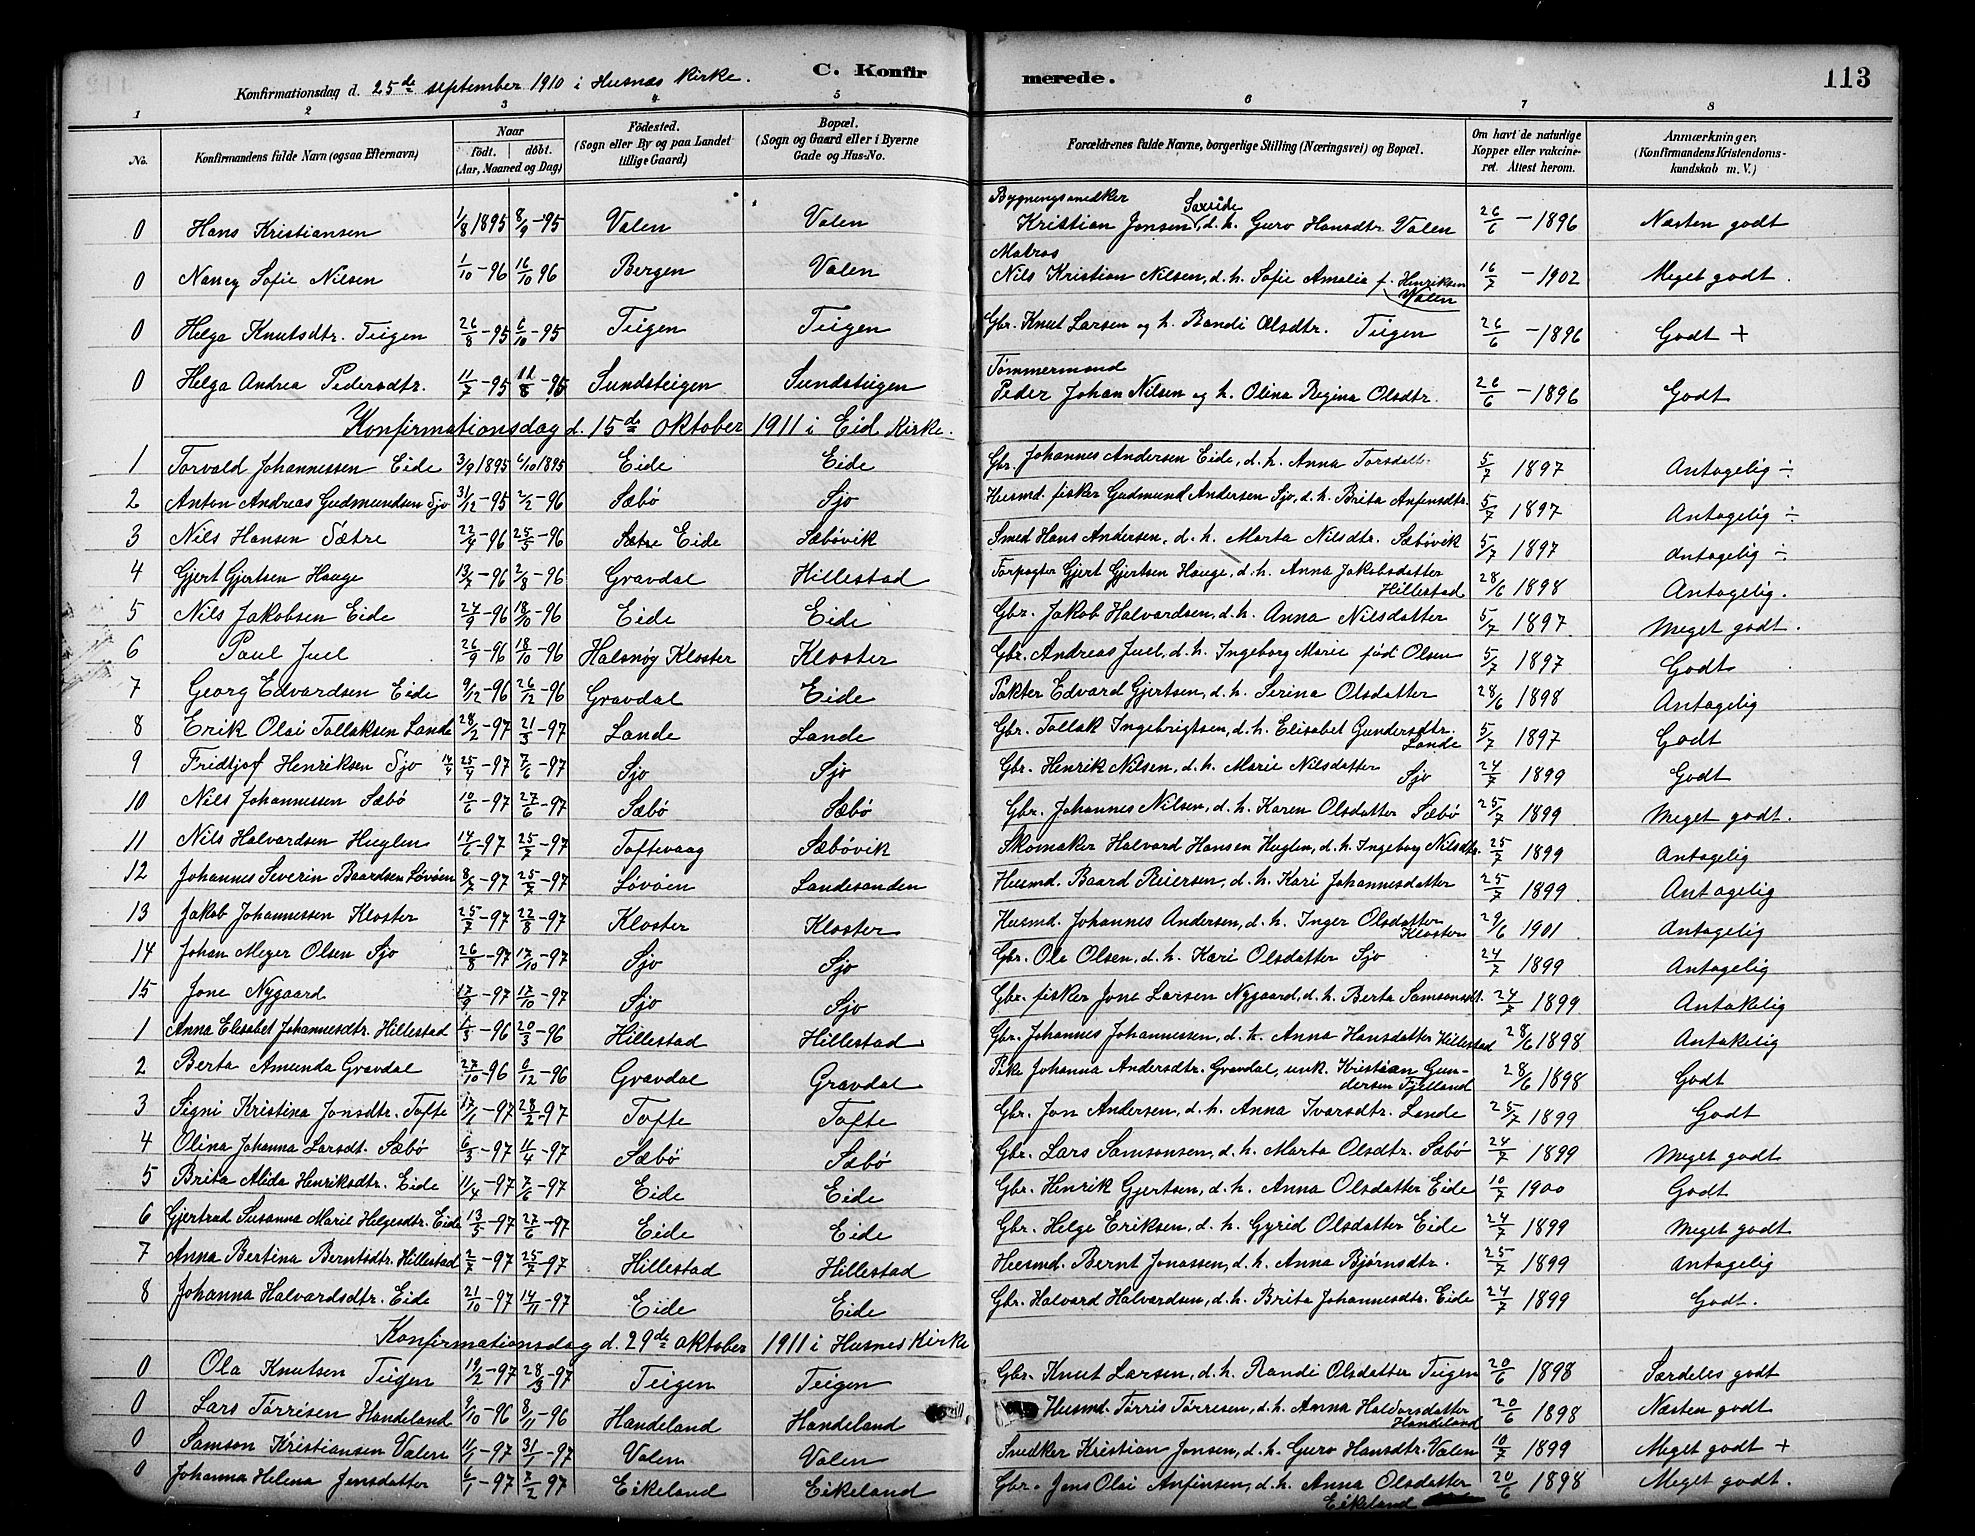 Konfirmationsdag d. 25de september 1910 i Husnæs Kirke. C. Konfirmerede. 113
1 2 3 4 5 6 7 8
No. Konfirmandens fulde Navn (ogsaa Efternavn) Naar født. døbt. (Aar, Maaned og Dag) Fødested. (Sogn eller By og paa Landet tillige Gaard) Bopæl. (Sogn og Gaard eller i Byerne Gade og Hus-No. Forældrenes fulde Navne, borgerlige Stilling (Næringsvei) og Bopæl. Om havt de naturlige Kopper eller vakcineret. Attest herom. Anmærkninger, (Konfirmandens Kristendomskundskab m. V.)
0 Hans Kristiansen 1/8 1895 8/9-95 Valen Valen Bygningssnedker Kristian Jonsen, d. h. Guro Hansdtr. Valen 26/6-1896 Næsten godt
0 Nancy Sofie Nilsen 1/10-96 16/10 96 Bergen Valen Matros Nils Kristian Nilsen, d. h. Sofie Amalia f. Henriksen Valen 16/7-1902 Meget godt.
0 Helga Knutsdtr. Teigen 26/8-95 6/10-95 Teigen Teigen Gbr. Knut Larsen og h. Randi Olsdtr. Teigen 26/6-1896 Godt +
0 Helga Andrea Pedersdtr. 11/7-95 11/8-95 Sundsteigen Sundsteigen Tømmermand Peder Johan Nilsen og h. Olina Regina Olsdtr. 26/6-1896 Godt
Konfirmationsdag d. 15de oktober 1911 i Eid Kirke.
1 Torvald Johannessen Eide 3/9 1895 6/10 1895 Eide Eide Gbr. Johannes Andersen Eide, d. h. Anna Torsdatter 5/7 1897 Antagelig ÷
2 Anton Andreas Gudmundsen Sjo 31/12-95 2/2-96 Sæbö Sjo Husmd. fisker Gudmund Andersen Sjo, d. h. Brita Anfinsdtr. 5/7 1897 Antagelig ÷
3 Nils Hansen Sætre 22/4-96 25/5-96 Sætre Eide Sæbövik Smed Hans Andersen, d. h. Marta Nilsdtr. Sæbövik 5/7 1897 Antagelig ÷
4 Gjert Gjertsen Hauge 13/7-96 2/8-96 Gravdal Hillestad Forpagter Gjert Gjertsen Hauge, d. h. Anna Jakobsdatter Hillestad 28/6 1898 Antagelig.
5 Nils Jakobsen Eide 24/9-96 18/10-96 Eide Eide Gbr. Jakob Halvardsen, d. h. Anna Nilsdatter 5/7 1897 Meget godt.
6 Paul Juel 26/9-96 18/10-96 Halsnøy Kloster Kloster Gbr. Andreas Juel, d. h. Ingeborg Marie född Olsen 5/7 1897 Godt
7 Georg Edvardsen Eide 9/12-96 26/12-96 Gravdal Eide Pakter Edvard Gjertsen, d. h. Serina Olsdatter 28/6 1898 Antagelig
8 Erik Olai Tollaksen Lande 28/2-97 21/3-97 Lande Lande Gbr. Tollak Ingebrigtsen, d. h. Elisabet Gundersdtr. Lande 5/7 1897 Godt
9 Fridtjof Henriksen Sjo 25/4-97 7/6-97 Sjo Sjo Gbr. Henrik Nilsen, d. h. Marie Nilsdatter Sjo 24/7 1899 Godt
10 Nils Johannessen Sæbö 10/6-97 27/6-97 Sæbö Sæbö Gbr. Johannes Nilsen, d. h. Karen Olsdatter Sæbö 25/7 1899 Meget godt.
11 Nils Halvardsen Huglen 14/6-97 25/7-97 Toftevaag Sæbövik Skomaker Halvard Hansen Huglen, d. h. Ingeborg Nilsdtr. 25/7 1899 Antagelig
12 Johannes Severin Baardsen Lövöen 8/7-97 25/7-97 Lövöen Landesanden Husmd. Baard Reiersen, d. h. Kari Johannesdatter 25/7 1899 Antagelig
13 Jakob Johannessen Kloster 25/7-97 22/8-97 Kloster Kloster Husmd. Johannes Andersen, d. h. Inger Olsdatter Kloster 29/6 1901 Antagelig
14 Johan Meyer Olsen Sjo 26/8-97 17/10-97 Sjo Sjo Gbr. Ole Olsen, d. h. Kari Olsdatter Sjo 24/7 1899 Antagelig
15 Jone Nygaard 17/9-97 17/10-97 Sjo Sjo Gbr. fisker Jone Larsen Nygaard, d. h. Berta Samsonsdt. 24/7 1899 Antakelig
1 Anna Elisabet Johannesdtr. Hillestad /3-96 20/3-96 Hillestad Hillestad Gbr. Johannes Johannessen, d. h. Anna Hansdatter Hillestad 28/6 1898 Antakelig
2 Berta Amunda Gravdal 27/10-96 6/12-96 Gravdal Gravdal Pike Johanna Andersdtr. Gravdal, unk. Kristian Gundersen Fjelland 28/6 1898 Godt
3 Signi Kristina Jonsdtr. Tofte 17/1-97 28/2-97 Tofte Tofte Gbr. Jon Andersen, d. h. Anna Ivarsdtr. Lande 25/7 1899 Godt
4 Olina Johanna Larsdt. Sæbö 6/3-97 11/4-97 Sæbö Sæbö Gbr. Lars Samsonsen, d. h. Marta Olsdtr. Sæbö 24/7 1899 Meget godt
5 Brita Alida Henriksdtr. Eide 11/4-97 7/6-97 Eide Eide Gbr. Henrik Gjertsen, d. h. Anna Olsdatter Eide 10/7 1900 Godt
6 Gjertrud Susanna Marie Helgesdtr. Eide 13/5-97 27/6-97 Eide Eide Gbr. Helge Eriksen, d. h. Gyrid Olsdatter Eide 24/7 1899 Meget godt
7 Anna Bertina Berntsdtr. Hillestad 2/7-97 25/7-97 Hillestad Hillestad Husmd. Bernt Jonassen, d. h. Anna Bjørnsdtr. 25/7 1899 Antagelig
8 Johanna Halvardsdtr. Eide 21/10-97 14/11-97 Eide Eide Gbr. Halvard Halvardsen, d. h. Brita Johannesdtr. Eide 24/7 1899 Godt.
Konfirmationsdag d. 29de oktober 1911 i Husnes Kirke
0 Ola Knutsen Teigen 19/2-97 28/3-97 Teigen Teigen Gbr. Knut Larsen, d. h. Randi Olsdatter Teigen 20/6 1898 Særdeles godt
0 Lars Törrisen Handeland 9/10-96 8/11-96 Handeland Handeland Husmd. Törris Törresen, d. h. Anna Haldorsdatter Handeland 20/6 1898 Næsten godt
0 Samson Kristiansen Valen 11/1-97 31/1-97 Valen Valen Snedker Kristian Jonsen, d. h. Guro Hansdtr. Valen 10/7 1899 Meget godt +
0 Johanna Helena Jensdatter 6/1-97 7/2-97 Eikeland Eikeland Gbr. Jens Olai Anfinsen, d. h. Anna Olsdatter Eikeland 20/6 1898 Meget godt.